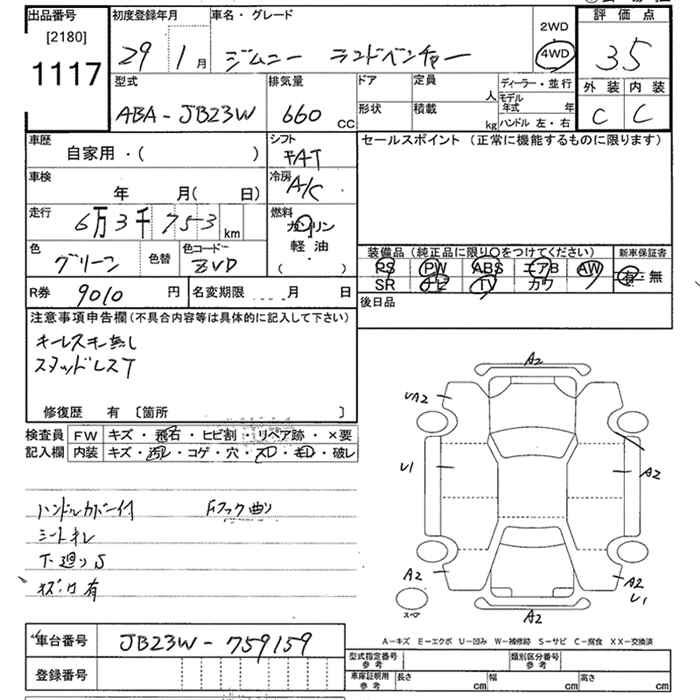 出品番号 初度登録年月 車名・グレード 2WD 評価点
[2180] 29 1月 ジムニー ランドベンチャー 4WD 35
1117
型式 排気量 ドア 定員 人 ディーラー・並行 外装 内装
ABA-JB23W 660 CC 形状 積載 kg モデル年式 年 C C
ハンドル 左・右
車歴 シフト セールスポイント (正常に機能するものに限ります)
自家用・( ) FAT
車検 冷房
年 月( 日) A/C
走行 燃料
6万3千753 km ガソリン
軽油・
( )
色 色替 色コード 装備品 (純正品に限り○をつけてください) 新車保証書
グリーン ZVD PS PW ABS エアB AW 有・無
SR ナビ TV カワ
R券 9010 円 名変期限 月 日 後日品
注意事項申告欄 (不具合内容等は具体的に記入して下さい)
キーレスキー無し
スタッドレスT
修復歴 有 〔箇所 〕
検査員 FW キズ・飛石・ヒビ割・リペア跡・×要
記入欄 内装 キズ・汚レ・コゲ・穴・スレ・キレ・破レ
ハンドルカバー付 Fフック曲り
シートキレ
下廻りS
A2
UA2
U1
A2
A2
A2
U1
A2
スペア
A-キズ E-エクボ U-凹み W-補修跡 S-サビ C-腐食 XX-交換済
車台番号 JB23W-759159
登録番号
型式指定番号 参考 類別区分番号 参考
車庫証明用 参考 長さ cm 幅 cm 高さ cm